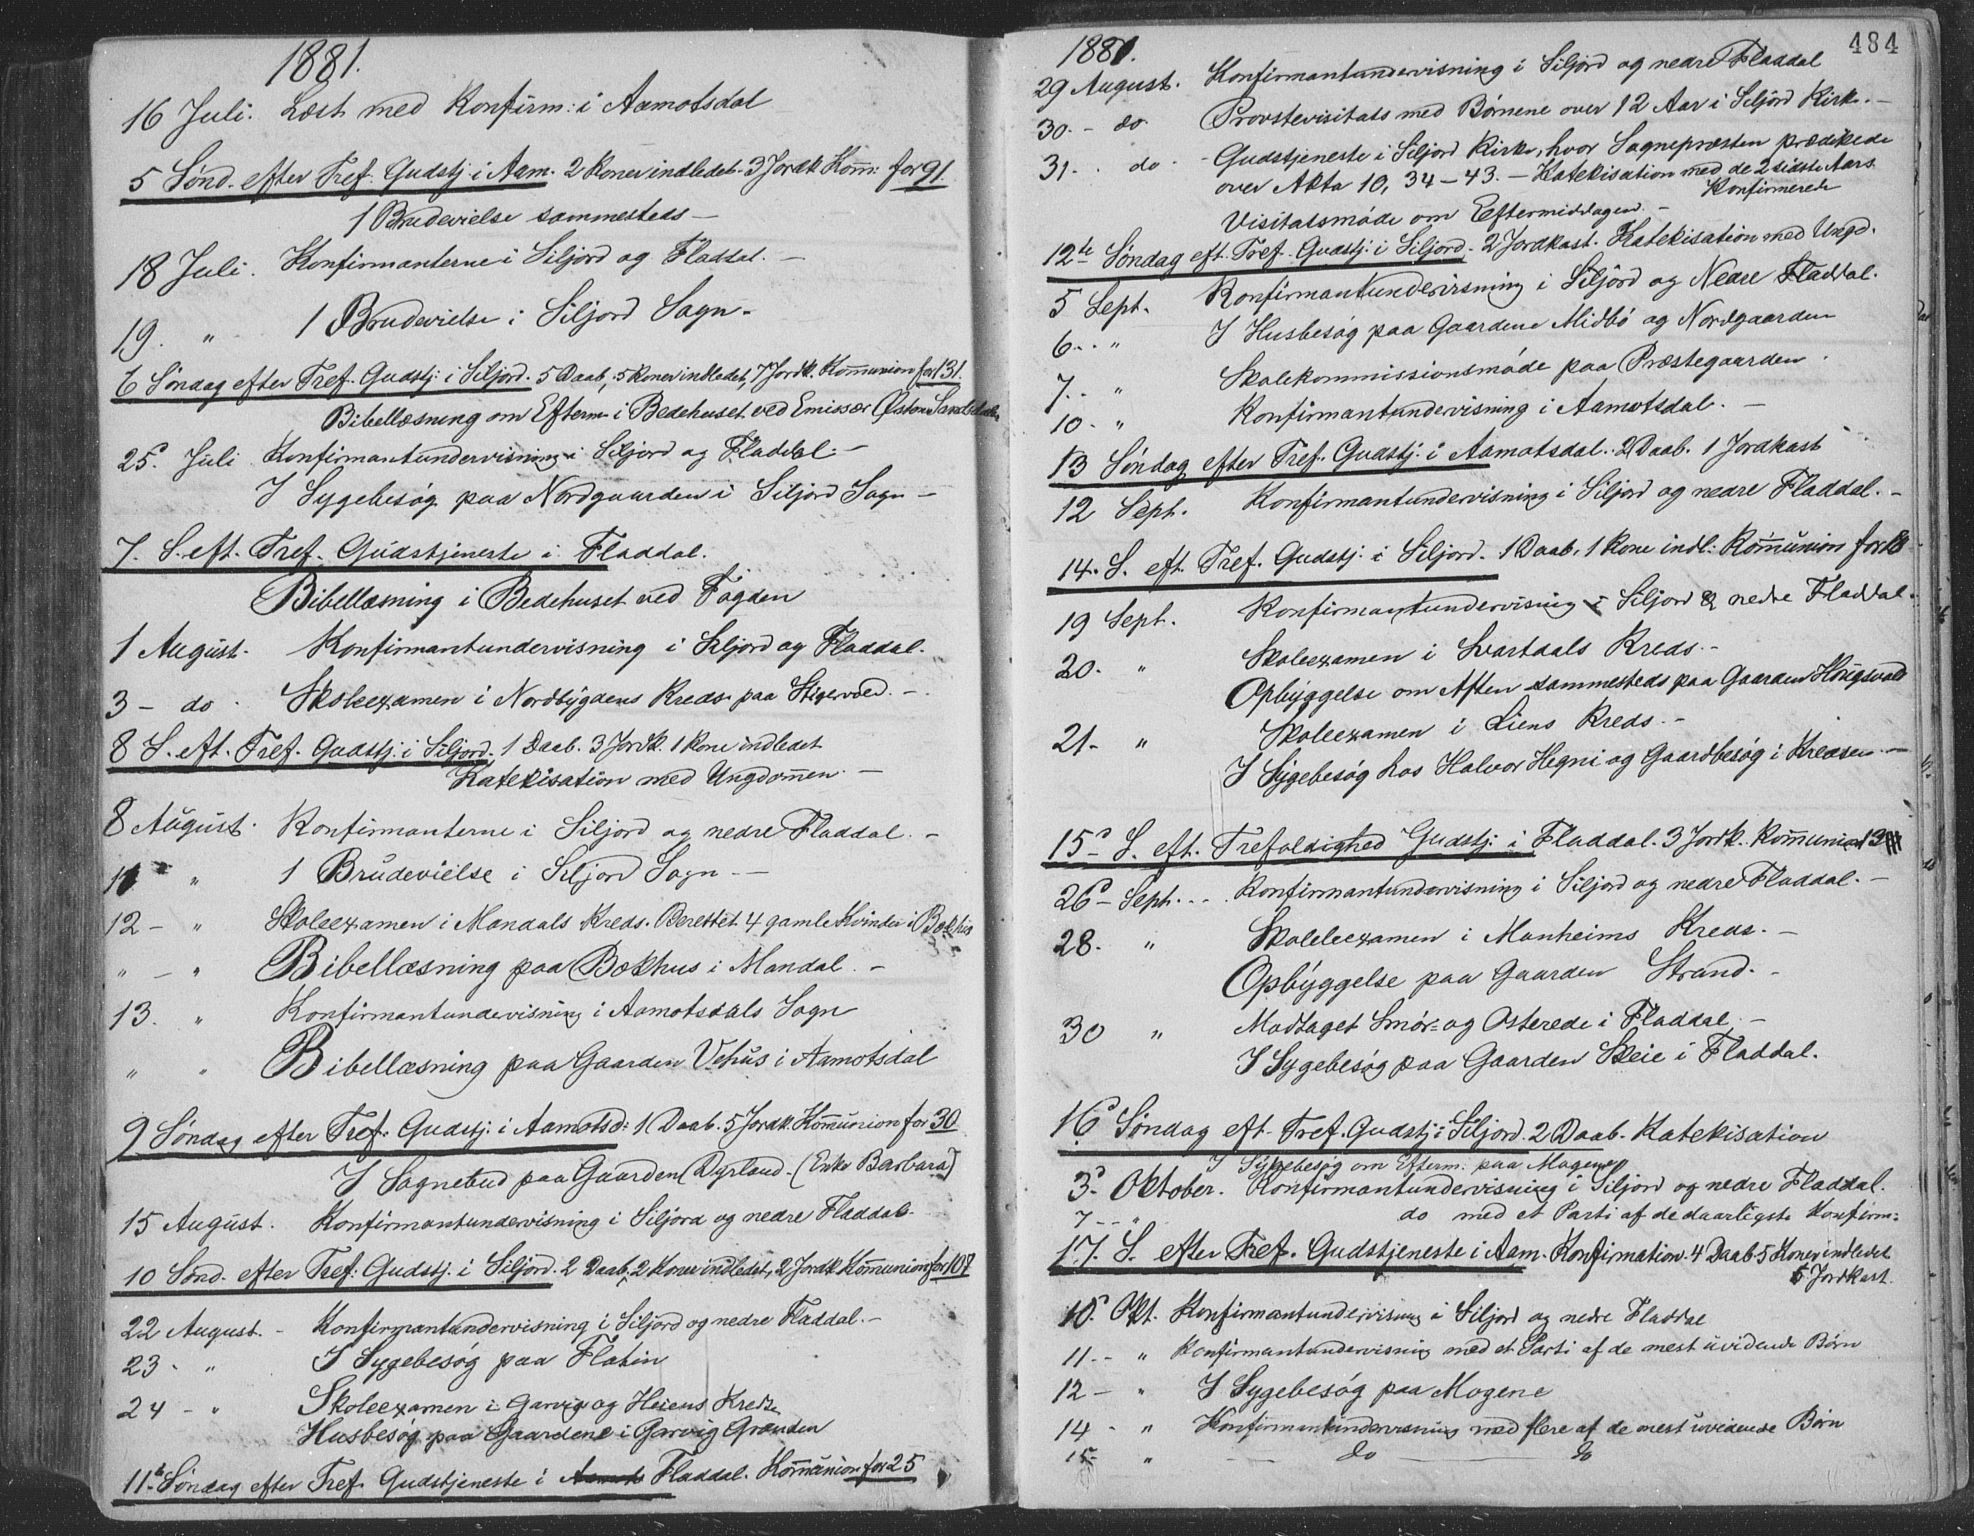 1881.
16 Juli. Læst med Konfirm: i Aamotsdal
5 Sønd. efter Tref. Gudstj. i Aam. 2 Koner indledet. 3 Jordk. Komm: for 91
1 Brudevielse sammesteds —
18 Juli. Konfirmanterne i Siljord og Fladdal. —
19. " 1 Brudevielse i Siljord Sogn.
6 Søndag efter Tref. Gudstj: i Siljord. 5 Daab, 5 Koner indledet, 7 Jordk. Kommunion for 131.
Bibellæsning om Efterm. i Bedehuset ved Emissær
25. Juli Konfirmantundervisning i Siljord og Fladdal. —
I Sygebesøg paa Nordgaarden i Siljord Sogn —
7. S. eft. Tref. Gudstjeneste i Fladdal.
Bibellæsning i Bedehuset ved Fogden
1 August. Konfirmantundervisning i Siljord og Fladdal.
3 — do. Skoleexamen i Nordbygdens Kreds paa —
8 S. eft. Tref. Gudstj: i Siljord. 1 Daab. 3 Jordk. 1 Kone indledet
Katekisation med Ungdommen. —
8 August. Konfirmanterne i Siljord og nedre Fladdal. —
11 " 1 Brudevielse i Siljord Sogn —
12 — " Skoleexamen i Mandals Kreds. Berettet 4 gamle Kvinder i Bokhus
" — " Bibellæsning paa Bokhus i Mandal. —
13. " Konfirmantundervisning i Aamotsdals Sogn
" " Bibellæsning paa Gaarden Vehus i Aamotsdal
9 Søndag efter Tref. Gudstj: i Aamotsd: 1 Daab. 5 Jordk. Kommunion for 30
I Sognebud paa Gaarden Dyrland. (Enke Barbara)
15 August. Konfirmantundervisning i Siljord og nedre Fladdal.
10 Sønd. efter Tref. Gudstj. i Siljord. 2 Daab, 2 Koner indledet, 2 Jordk Kommunion for 107
22 August. — Konfirmantundervisning i Siljord og nedre Fladdal. —
23 - " I Sygebesøg paa Flatin
24 — " Skoleexamen i Garvig og Heiens Kredse
Husbesøg paa Gaardene i Garvig Grænden
11te Søndag efter Tref. Gudstjeneste i Fladdal. Kommunion for 25
484
1881.
29 August. Konfirmantundervisning i Siljord og nedre Fladdal
30. — do Provstevisitats med Børnene over 12 Aar i Siljord Kirke. —
31. . do - Gudstjeneste i Siljord Kirke, hvor Sognepræsten prædikede
over Akta 10, 34 — 43. — Katekisation med de 2 sidste Aars
Konfirmerede
Visitatsmøde om Eftermiddagen. —
12te Søndag eft. Tref. Gudstj: i Siljord. 2 Jordkast. Katekisation med Ungd.
5 Sept. Konfirmantundervisning i Siljord og Nedre Fladdal.
6. . " I Husbesøg paa Gaardene Midbø og Nordgaarden
7. . " Skolekommissionsmøde paa Præstegaarden.
10 . " Konfirmantundervisning i Aamotsdal. —
13 Søndag efter Tref. Gudstj: i Aamotsdal. 2 Daab. 1 Jordkast
12 Sept. Konfirmantundervisning i Siljord og nedre Fladdal. —
14. S. eft. Tref. Gudstj: i Siljord. 1 Daab, 1 Kone indl: Kommunion for 18
19 Sept. Konfirmantundervisning i Siljord & nedre Fladdal.
20. " Skoleexamen i Svartdals Kreds. —
Opbyggelse om Aften sammesteds paa Gaarden
21. " Skoleexamen i Liens Kreds. —
I Sygebesøg hos Halvor Hegni og Gaardbesøg i Kredsen —
15. S. eft. Trefoldighed Gudstj: i Fladdal. 3 Jordk. Kommunion
26 Sept. . . . Konfirmantundervisning i Siljord og nedre Fladdal. —
28. " Skoleexamen i Manheims Kreds. —
Opbyggelse paa Gaarden Strand. —
30 " Modtaget Smør- og Osterede i Fladdal. —
I Sygebesøg paa Gaarden Skeie i Fladdal.
16 Søndag eft. Tref. Gudstj: i Siljord. 2 Daab. Katekisation
I Sygebesøg om Efterm: paa Mogene
3. Oktober. Konfirmantundervisning i Siljord og nedre Fladdal.
7 — " do med et Parti af de daarligste Konfirm:
17. S. efter Tref. Gudstjeneste i Aam. Konfirmation. 4 Daab. 5 Koner indledet
5 Jordkast.
10. Okt. Konfirmantundervisning i Siljord og nedre Fladdal
11. — " Konfirmantundervisning med et Parti af de mest uvidende Børn
12 — " I Sygebesøg paa Mogene
14 - " Konfirmantundervisning med flere af de mest uvidende Børn
15 " — do — do